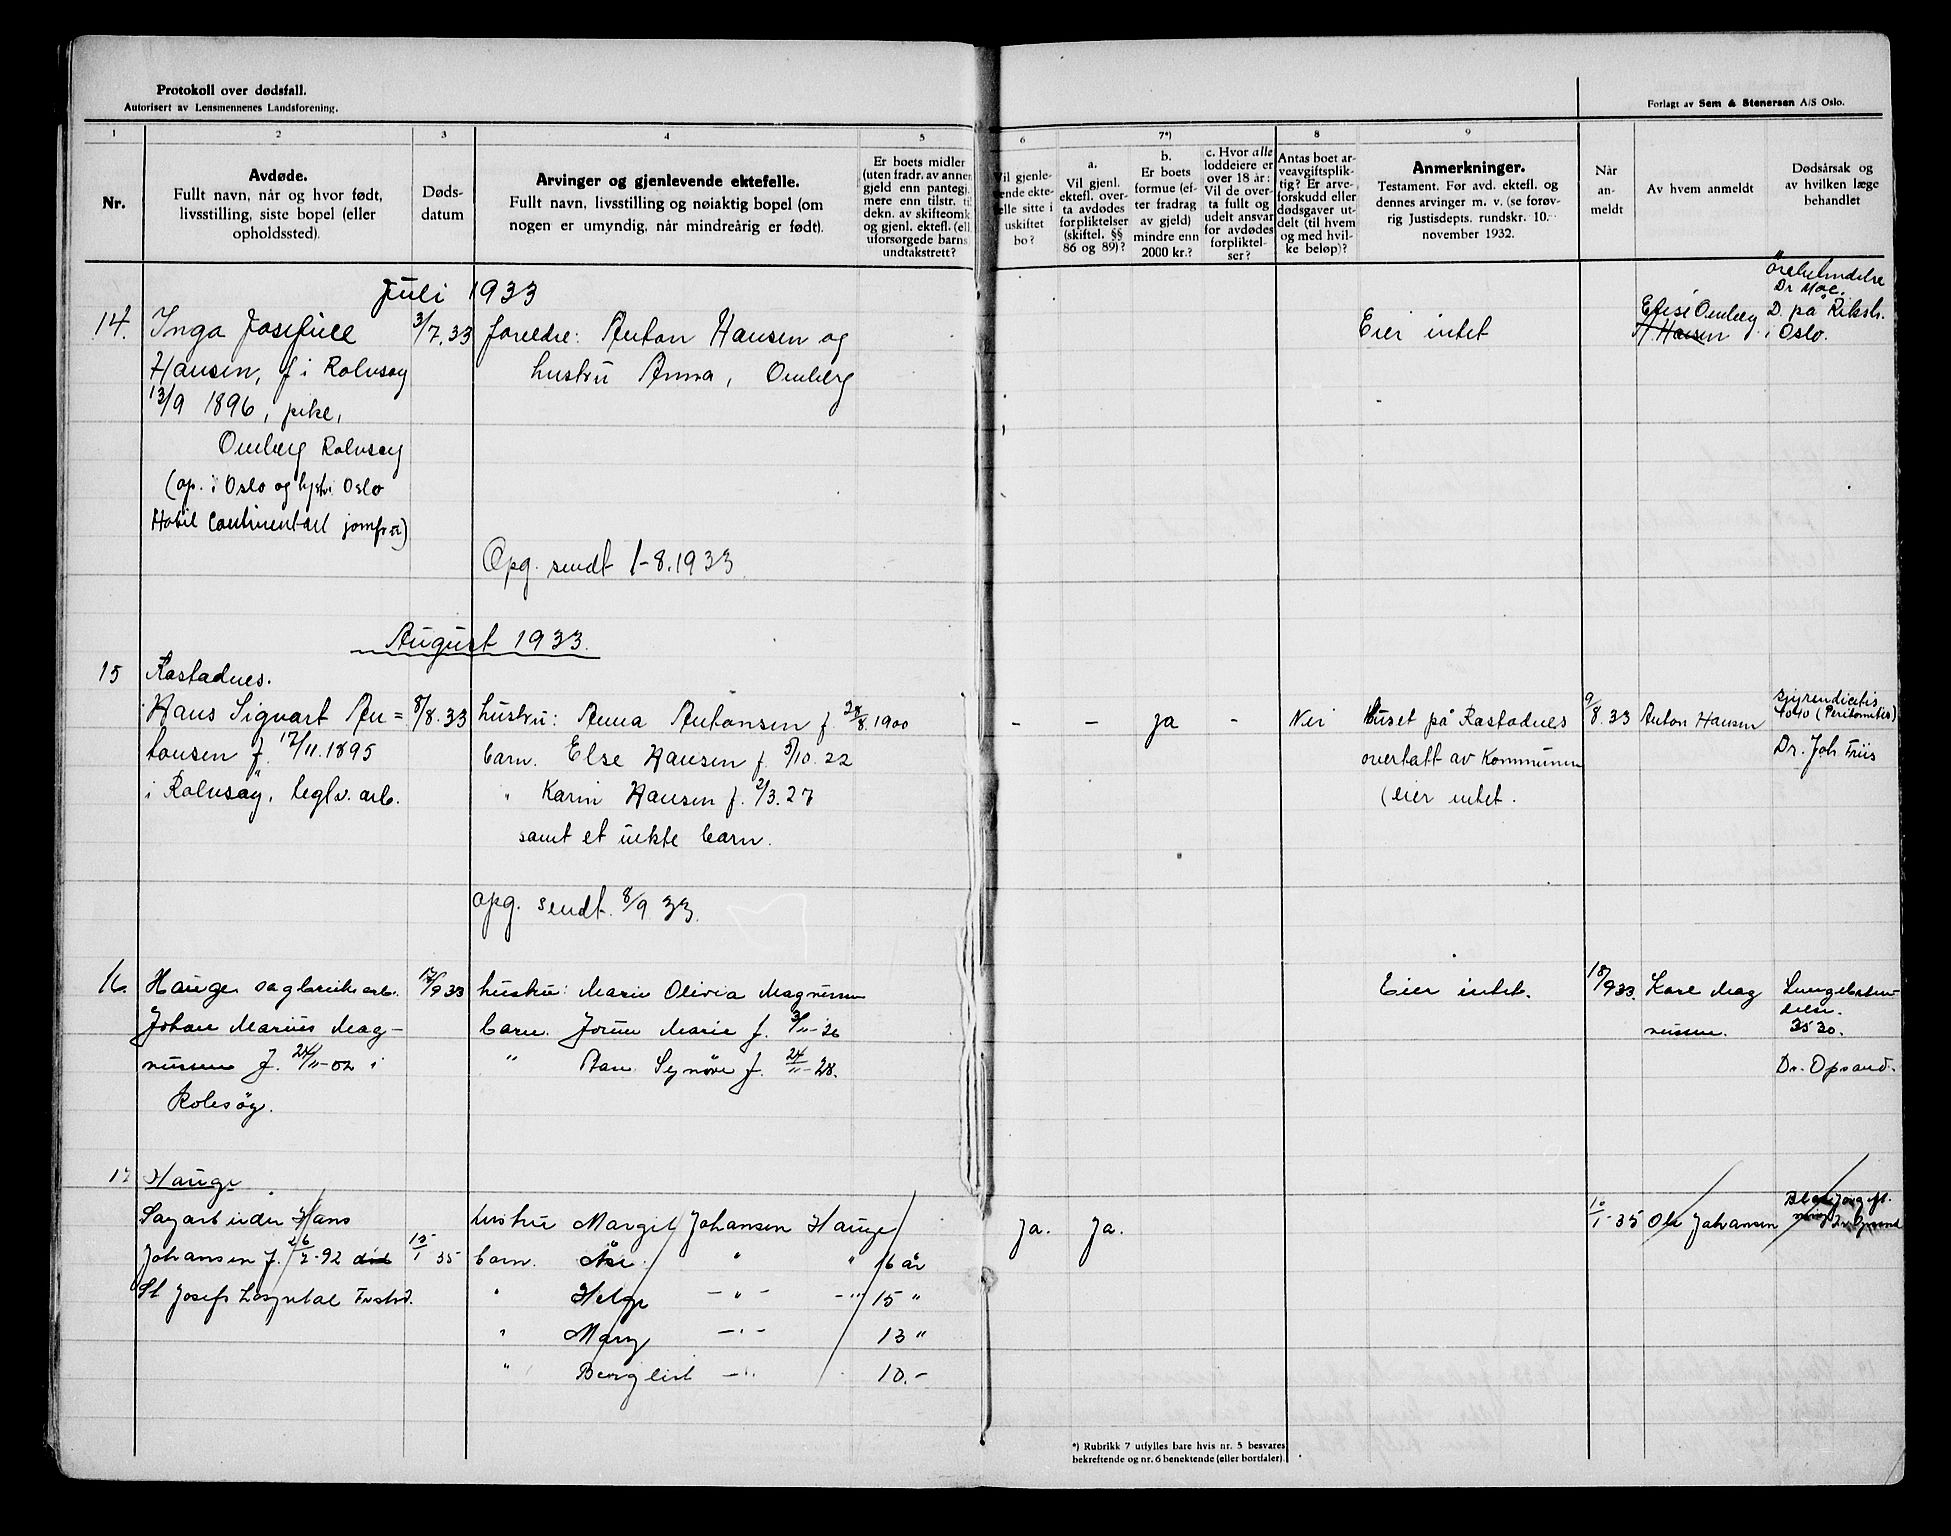 Protokoll over dødsfall.
Autorisert av Lensmennenes Landsforening.
Forlagt av Sem & Stenersen A/S Oslo.
1 2 3 4 5 6 7*) 8 9
Nr.
Avdøde.
Fullt navn, når og hvor født,
livsstilling, siste bopel (eller
opholdssted).
Døds-
datum
Arvinger og gjenlevende ektefelle.
Fullt navn, livsstilling og nøiaktig bopel (om
nogen er umyndig, når mindreårig er født).
Er boets midler
(uten fradr. av annen
gjeld enn pantegj.
mere enn tilstr. ti
dekn. av skifteomk
og gjenl. ektefl. (ell.
uforsørgede barns)
undtakstrett?
Vil gjenle-
vende ekte-
felle sitte i
uskiftet
bo?
a.
Vil gjenl.
ektefl. over-
ta avdødes
forpliktelser
(skiftel. §§
86 og 89)?
b.
Er boets
formue (ef-
ter fradrag
av gjeld)
mindre enn
2000 kr.?
c. Hvor alle
loddeiere er
over 18 år:
Vil de over-
ta fullt og
udelt ansvar
for avdødes
forpliktel-
ser?
Antas boet ar-
veavgiftsplik-
tig? Er arve-
forskudd eller
dødsgaver ut-
delt (til hvem
og med hvil-
ke beløp)?
Anmerkninger.
Testament. Før avd. ektefl. og
dennes arvinger m. v. (se forøv-
rig Justisdepts. rundskr. 10.
november 1932.
Når
an-
meldt
Av hvem anmeldt
Dødsårsak og
av hvilken læge
behandlet
Juli 1933
14.
Inga Josefine
Hansen, f i Rolvsøy
13/9 1896, pike,
Omberg Rolvsøy
(op. i Oslo og
Hotel Continental jomfru)
3/7.33
foreldre: Anton Hansen og
hustru Anna, Omberg
Opg. sendt 1-8.1933
Eier intet
Elise Omberg
A. Hansen
Dr Moe.
D. på Riksh.
i Oslo.
August 1933.
15
Rostadnes.
Hans Sigvart An=
tonsen f. 17/11.1895
i Rolvsøy, arb.
8/8.33
hustru: Anna Antonsen f. 28/8.1900
barn. Else Hansen f. 5/10.22
" Karin Hansen f. 2/3.27
samt et uekte barn.
opg. sendt. 8/9 33.
- - ja - Nei
Huset på Rostadnes
overtatt av Kommunen
(eier intet.
9/8.33
Anton Hansen
(Peritonitis)
Dr. Joh Friis
16.
Hauge sagbruksarb.
Johan Marius Mag-
nussen f. 24/11-02 i
Rolvsøy.
17/9 33
hustru: Marie Olivia Magnussen
barn. Jorun Marie f. 3/11-26
" Synøve f. 24/11-28.
Eier intet.
18/9 33.
Kåre Mag
nussen.
Lungebeten-
delse.
3530.
Dr. Opsand.
17
Hauge
Sagarbeider Hans
Johansen f. 26/2-92 død
St Josefs Hospital Frstd.
15/1 35
hustru Margit Johansen Hauge
barn. Åse " " 16 år
" Helge - " - - " - 15 "
" Mary - " - 13 "
" Bergliot - " 10.-
Ja. Ja.
10/1-35
Ole Johansen
Blodforgift-
ning Dr. Opsand
*) Rubrikk 7 utfylles bare hvis nr. 5 besvares
bekreftende og nr. 6 benektende (eller bortfaler).